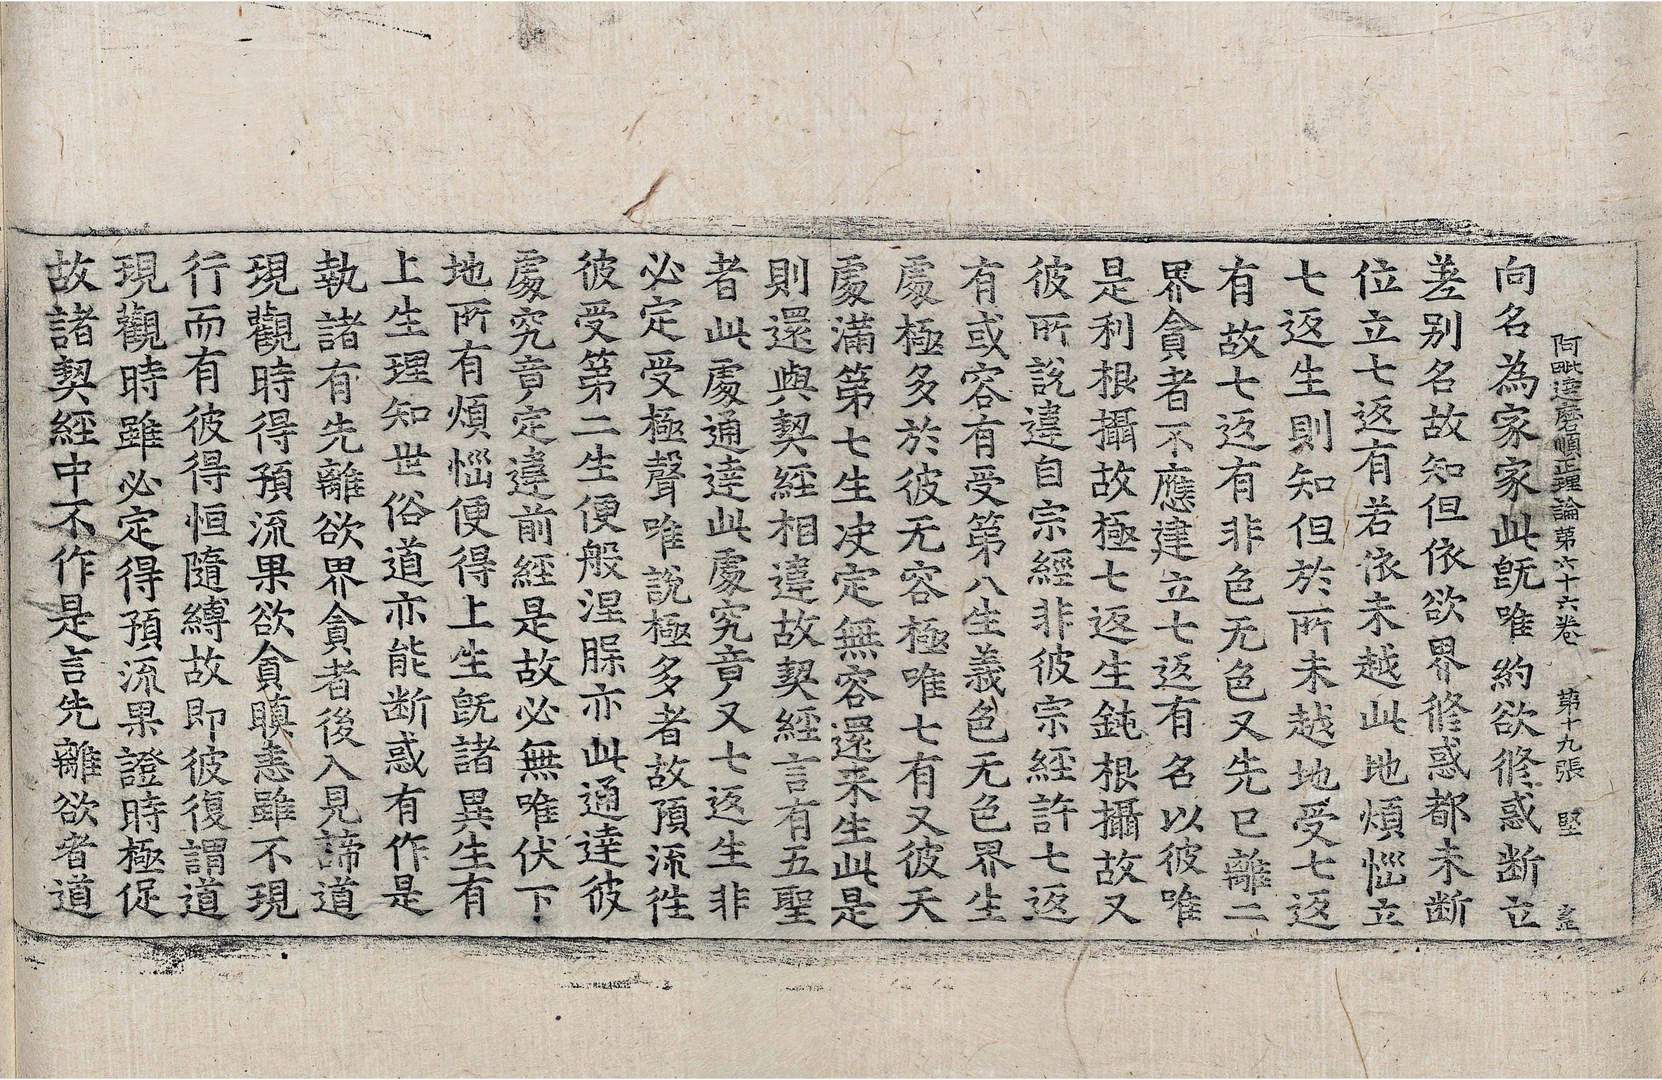 阿毗達磨順正理論第六十六卷 第十九張 堅
向名為家家此旣唯約欲修惑断立
差别名故知但依欲界修惑都未断
位立七返有若依未越此地煩惱立
七返生則知但於所未越地受七返
有故七返有非色无色又先已離二
界貪者不應建立七返有名以彼唯
是利根攝故極七返生鈍根攝故又
彼所說違自宗經非彼宗經許七返
有或容有受第八生義色无色界生
處極多於彼无容極唯七有又彼天
處滿第七生决定無容還来生此是
則還與契經相違故契經言有五聖
者此處通達此處究竟又七返生非
必定受極聲唯說極多者故預流徃
彼受第二生便般涅脲亦此通達彼
處究竟定違前經是故必無唯伏下
地所有煩惱便得上生旣諸異生有
上生理知世俗道亦能断惑有作是
執諸有先離欲界貪者後入見諦道
現觀時得預流果欲貪瞋恚雖不現
行而有彼得恒隨縛故即彼復謂道
現觀時雖必定得預流果證時極促
故諸契經中不作是言先離欲者道